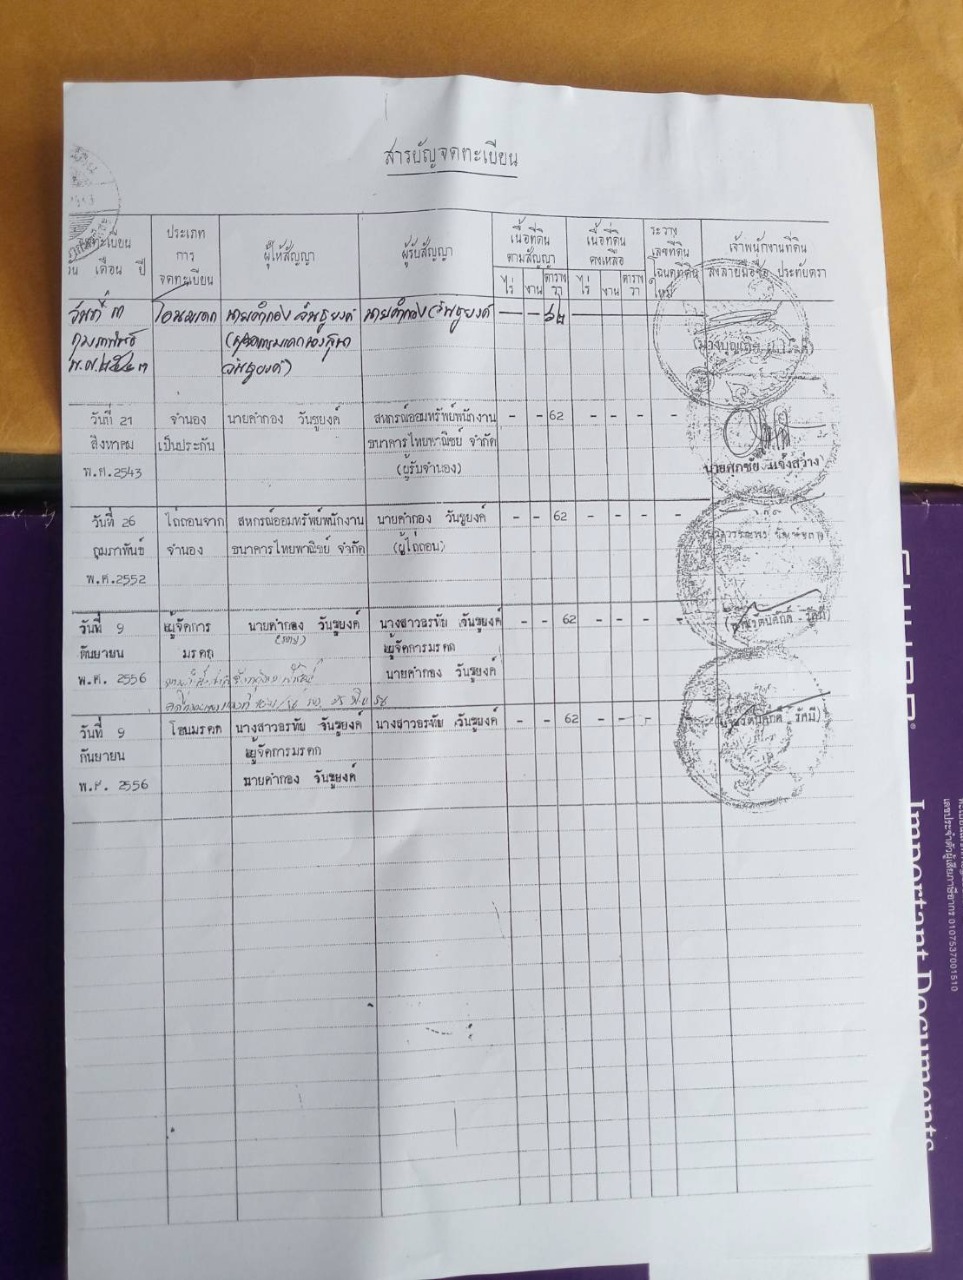 สารบัญจดทะเบียน
จดทะเบียน
วัน เดือน ปี
ประเภท
การ
จดทะเบียน
ผู้ให้สัญญา
ผู้รับสัญญา
เนื้อที่ดิน
ตามสัญญา
ไร่ งาน ตาราง
วา
เนื้อที่ดิน
คงเหลือ
ไร่ งาน ตาราง
วา
ระวาง
เลขที่ดิน
โฉนดที่ดิน
ใหม่
เจ้าพนักงานที่ดิน
ลงลายมือชื่อ ประทับตรา
วันที่ ๓ โอนมรดก นายคำกอง วันชูยงค์ นายคำกอง วันชูยงค์ — — ๖๒ — — —
กุมภาพันธ์
พ.ศ.
วันชูยงค์)
วันที่ 21 จำนอง นายคำกอง วันชูยงค์ สหกรณ์ออมทรัพย์พนักงาน - - 62 - - - -
สิงหาคม เป็นประกัน ธนาคารไทยพาณิชย์ จำกัด
พ.ศ.2543 (ผู้รับจำนอง)
นายศุภชัย แจ้งสว่าง
วันที่ 26 ไถ่ถอนจาก สหกรณ์ออมทรัพย์พนักงาน นายคำกอง วันชูยงค์ - - 62 - - - -
กุมภาพันธ์ จำนอง ธนาคารไทยพาณิชย์ จำกัด (ผู้ไถ่ถอน)
พ.ศ.2552
วันที่ 9 ผู้จัดการ นายคำกอง วันชูยงค์ นางสาวอรทัย วันชูยงค์ - - 62 - - - -
กันยายน มรดก (ตาย) ผู้จัดการมรดก
พ.ศ. 2556 นายคำกอง วันชูยงค์
(นายรัตนศักดิ์ รัศมี)
วันที่ 9 โอนมรดก นางสาวอรทัย วันชูยงค์ นางสาวอรทัย วันชูยงค์ - - 62 - - -
กันยายน ผู้จัดการมรดก
พ.ศ. 2556 นายคำกอง วันชูยงค์
(นายรัตนศักดิ์ รัศมี)
Important Documents
เลขประจำตัวผู้เสียภาษีอากร 0107537001510